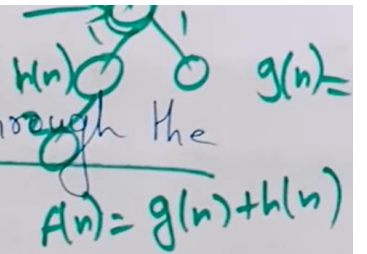 1
h(n) g(n)=
through the
f(n)= g(n)+h(n)